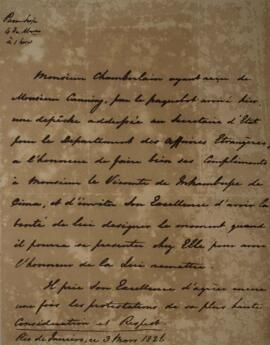 4 de Mars
à 1 hora
Monsieur Chamberlain ayant reçu de
Monsieur Canning, par le paquebot arrivé hier
une depêche addressée au Secretaire d'Etat
pour le Departement des Affaires Etrangères,
a l'honneur de faire bien ses Compliments
à Monsieur le Vicomte de Inhambupe de
Cima, et d'invite Son Excellence d'avoir la
bonté de lui designer le moment quand
il pourra se presenter chez Elle pour avoir
l'honneur de la Lui remettre.
Il prie Son Excellence d'agréer encore
une fois les protestations de sa plus haute
Consideration et Respect.
Rio de Janeiro, ce 3 Mars 1826